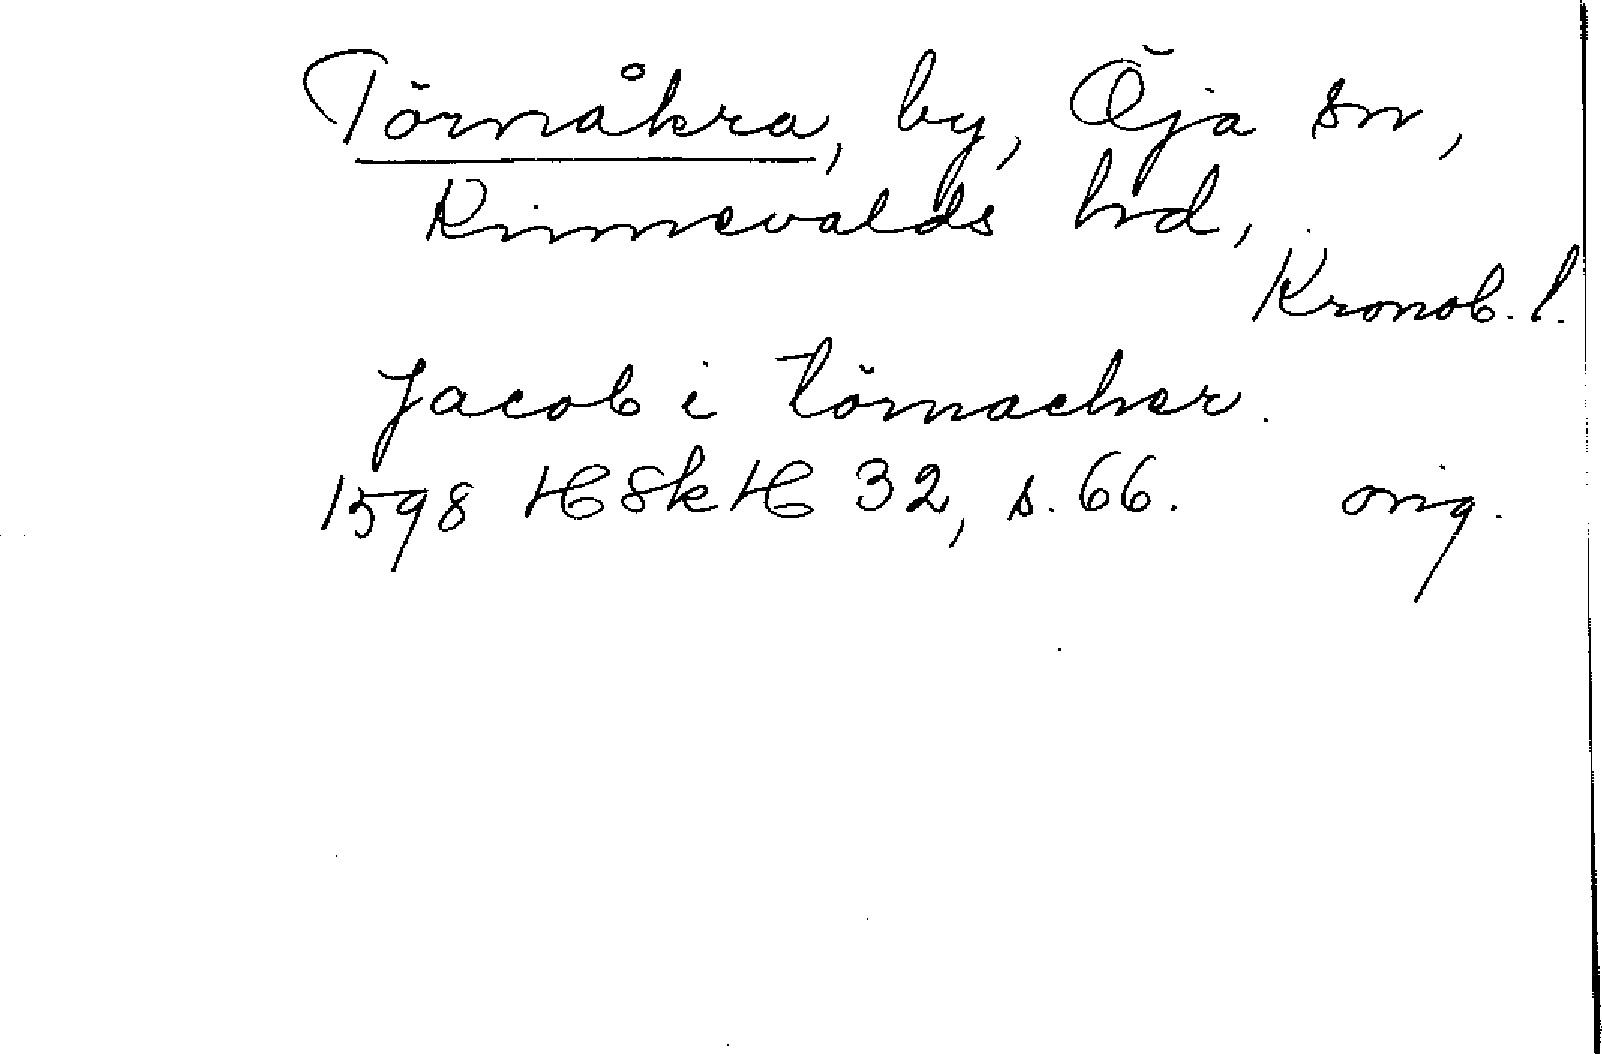 Törnåkra, by, Öja sn,
Kinnevalds hd,
Kronob. l.
Jacob i törnacher.
1598 HSkH 32, s. 66. orig.